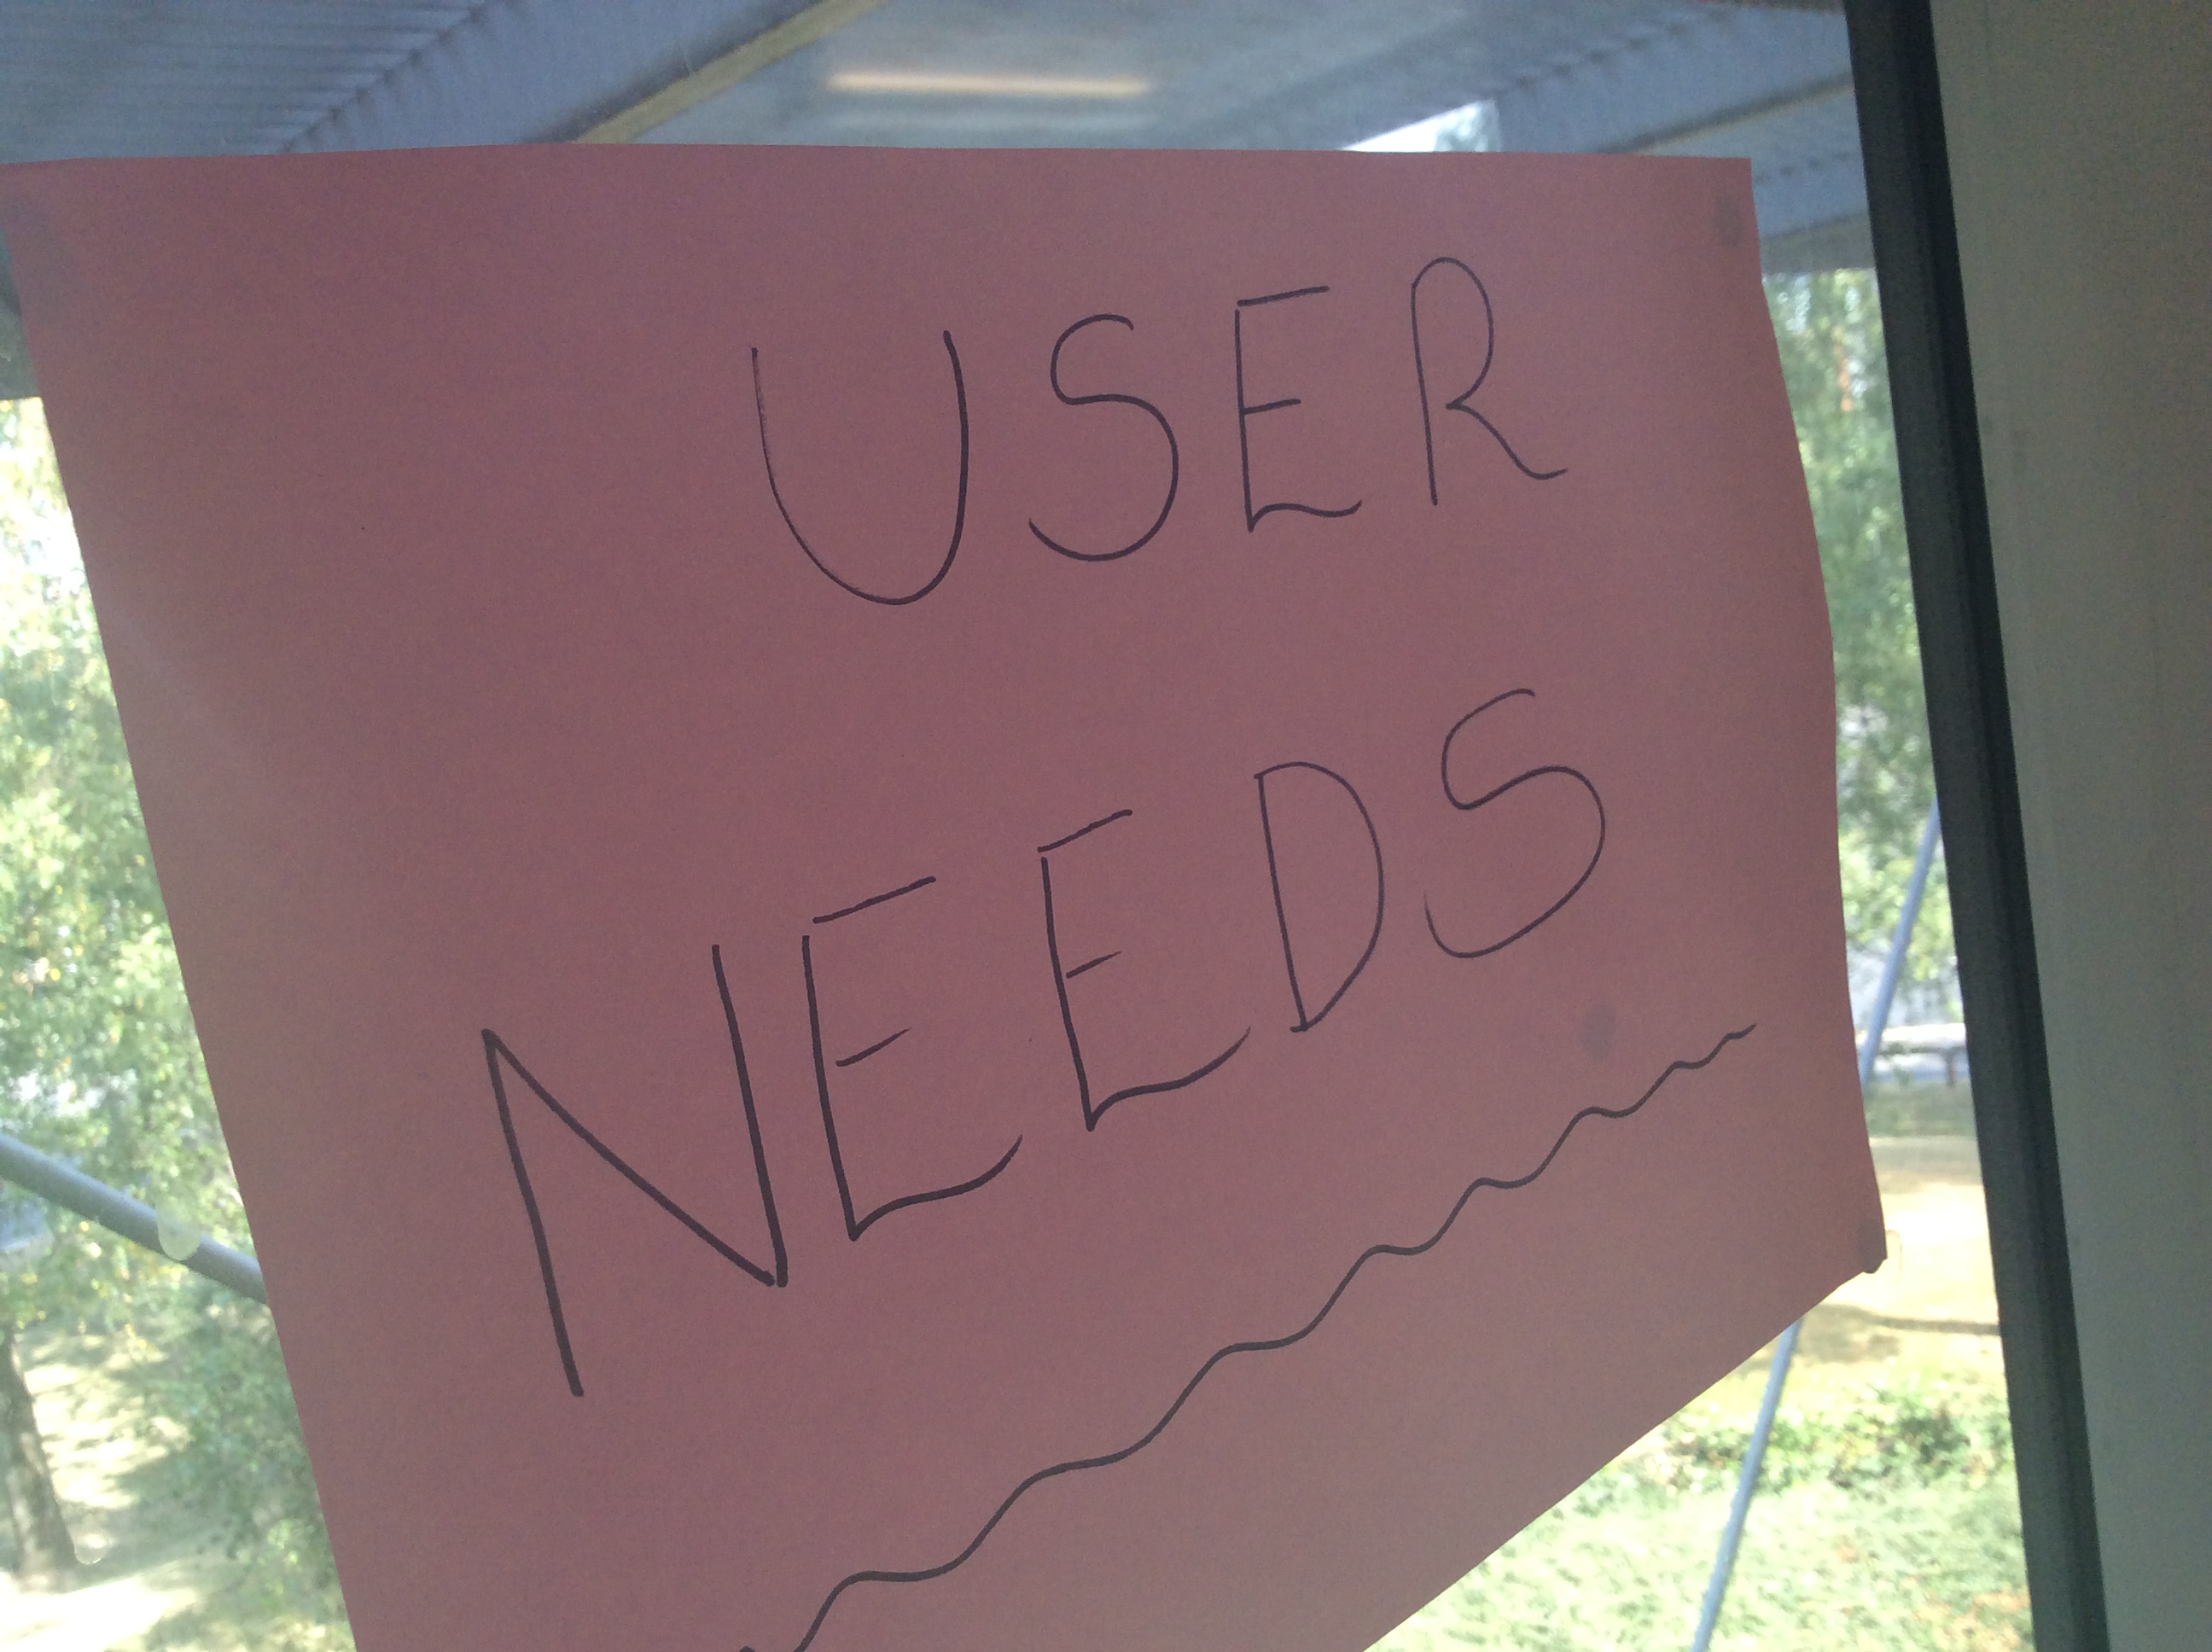 USER
NEEDS